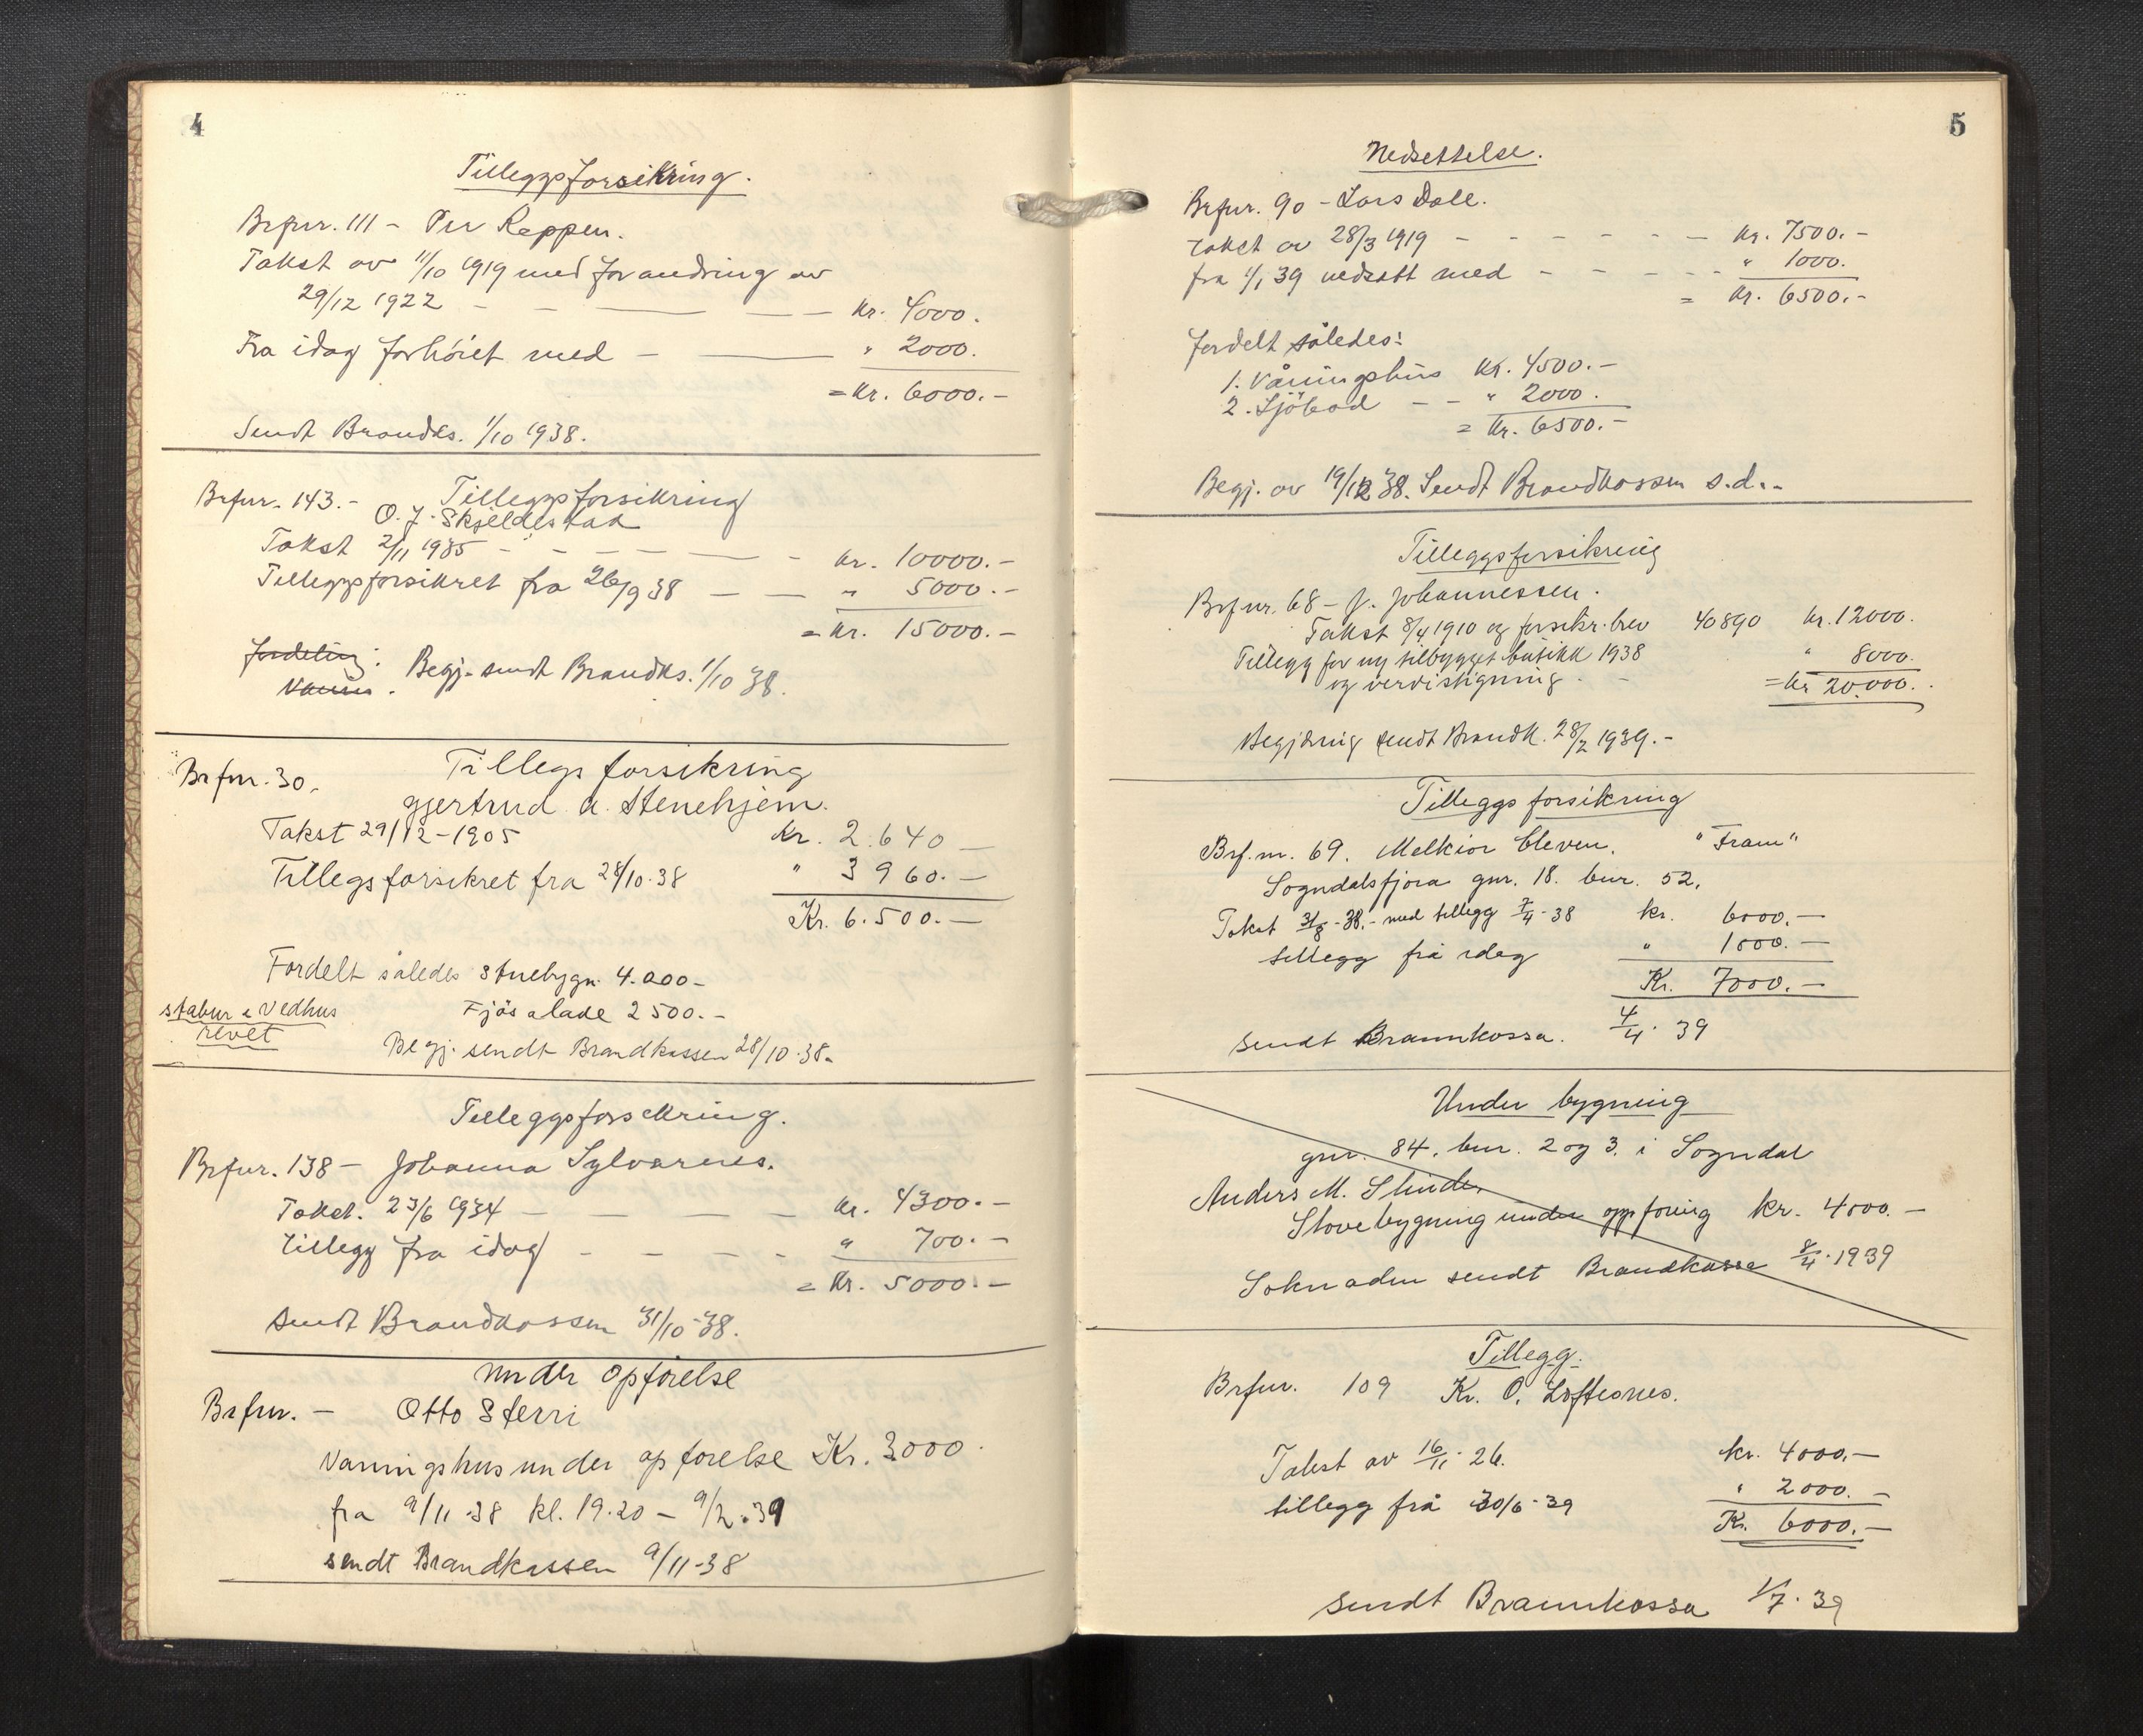 4
Tilleggsforsikring.
Brfnr. 111 - Per Reppen.
Takst av 11/10 1919 med forandring av
29/12 1922 - - — — — kr. 4000.
Fra idag forhöiet med - — " 2000.
= kr. 6000.-
Sendt Brandks. 1/10 1938.
Brfnr. 143.- Tilleggsforsikring
O. J. Skjeldestad
Takst 2/11 1935 - - - - — - kr. 10000.-
Tilleggsforsikret fra 26/9 38 — — " 5000.-
= kr. 15000.-
Fordeling:
Begj. sendt Brandks. 1/10 38.
Brfnr. 30. Tillegs forsikring
Gjertrud A. Stenehjem.
Takst 29/12-1905 Kr. 2.640 —
Tillegsforsikret fra 28/10-38 " 3960.—
Kr. 6.500.—
Fordelt således Stuebygn. 4.000-
stabur & Vedhus Fjös & lade 2500.-
revet
Begj. sendt Brandkassen 28/10-38.
Tilleggsforsikring.
Brfnr. 138 - Johanna Sylvarnes.
Takst. 23/6 1934 - — — — - kr. 4300.-
Tillegg fra idag - - - - " 700.-
= kr. 5000.-
Sendt Brandkassen 31/10-38.
Under opförelse
Brfnr. - Otto Sterri
Vaningshus under opförelse Kr. 3000.
fra 9/11-38 kl. 19.20 - 9/2.39
sendt Brandkassen 9/11-38
5
Nedsettelse.
Brfnr. 90 - Lars Dale.
Takst av 28/3 1919 - - - - - - kr. 7500.-
fra 1/1 39 nedsatt med - - - - - " 1000.
= kr. 6500.-
Fordelt således:
1. Våningshus kr. 4500.-
2. Sjöbod - - " 2000.
= kr. 6500.-
Begj. av 19/12 38. Sendt Brandkassen s.d.-
Tilleggsforsikring
Brfnr. 68 - J. Johannessen.
Takst 8/4 1910 og forsikr.brev 40890 kr. 12000.
Tillegg for ny tilbygget butikk 1938 " 8000.
og verdistigning - = Kr 20.000.
Begjæring sendt Brandk. 28/2 1939.-
Tilleggsforsikring
Brf.nr. 69. Melkior Cleven. "Fram"
Sogndalsfjöra gnr. 18. bnr. 52.
Takst 31/8-38.- med tillegg 7/4-38 kr. 6000.—
tillegg frå idag " 1000.—
Kr. 7000.—
sendt Brannkassa. 4/4. 39
Under bygning
gnr. 84. bnr. 2 og 3. i Sogndal
Anders M. Slinde.
Stovebygning under oppföring kr. 4000.—
Söknaden sendt Brandkassa 8/4.1939
Tillegg.
Brfnr. 109 Kr. O. Loftesnes.
Takst av 16/11-26. kr. 4000.—
tillegg frå 30/6-39 " 2000.—
Kr. 6000.—
sendt Brannkassa 1/7.39